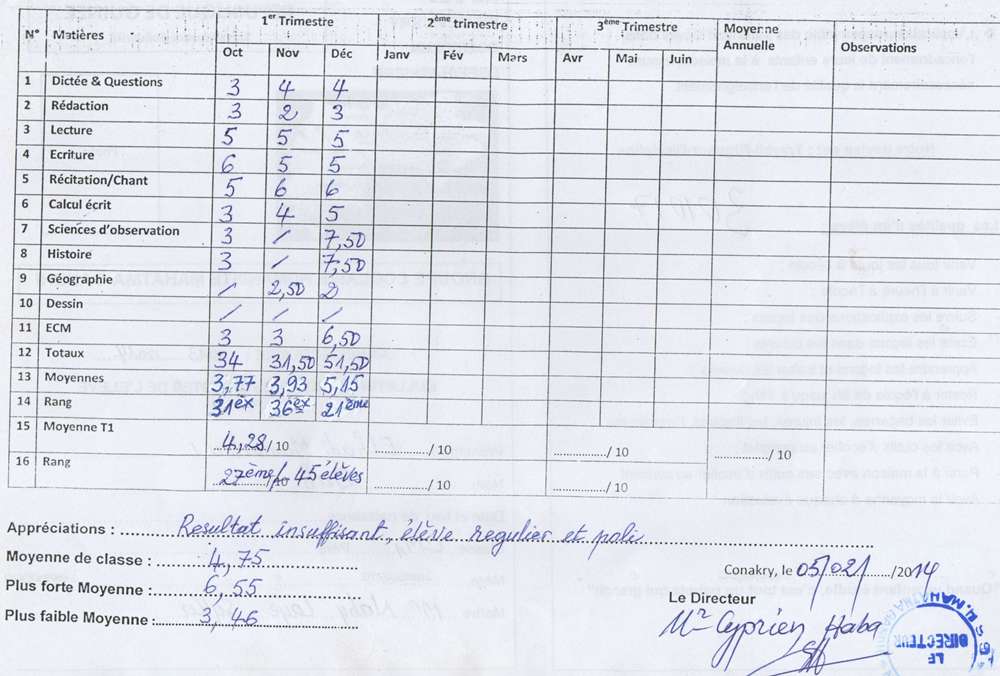 1er Trimestre 2ème trimestre 3ème Trimestre Moyenne Annuelle Observations
N° Matières Oct Nov Déc Janv Fév Mars Avr Mai Juin
1 Dictée & Questions 3 4 4
2 Rédaction 3 2 3
3 Lecture 5 5 5
4 Ecriture 6 5 5
5 Récitation/Chant 5 6 6
6 Calcul écrit 3 4 5
7 Sciences d'observation 3 / 7,50
8 Histoire 3 / 7,50
9 Géographie / 2,50 2
10 Dessin / / /
11 ECM 3 3 6,50
12 Totaux 34 31,50 51,50
13 Moyennes 3,77 3,93 5,15
14 Rang 31ex 36ex 21ème
15 Moyenne T1 4,28/10 ............/10 ............/10 ............/10
16 Rang 27ème/10 45élèves ............/10 ............/10
Appréciations : Resultat insuffisant, élève regulier et poli
Moyenne de classe : 4,75
Plus forte Moyenne : 6,55
Plus faible Moyenne : 3,46
Conakry, le 05/02/ /2014
Le Directeur
Mr Cyprien Haba
LE DIRECTEUR